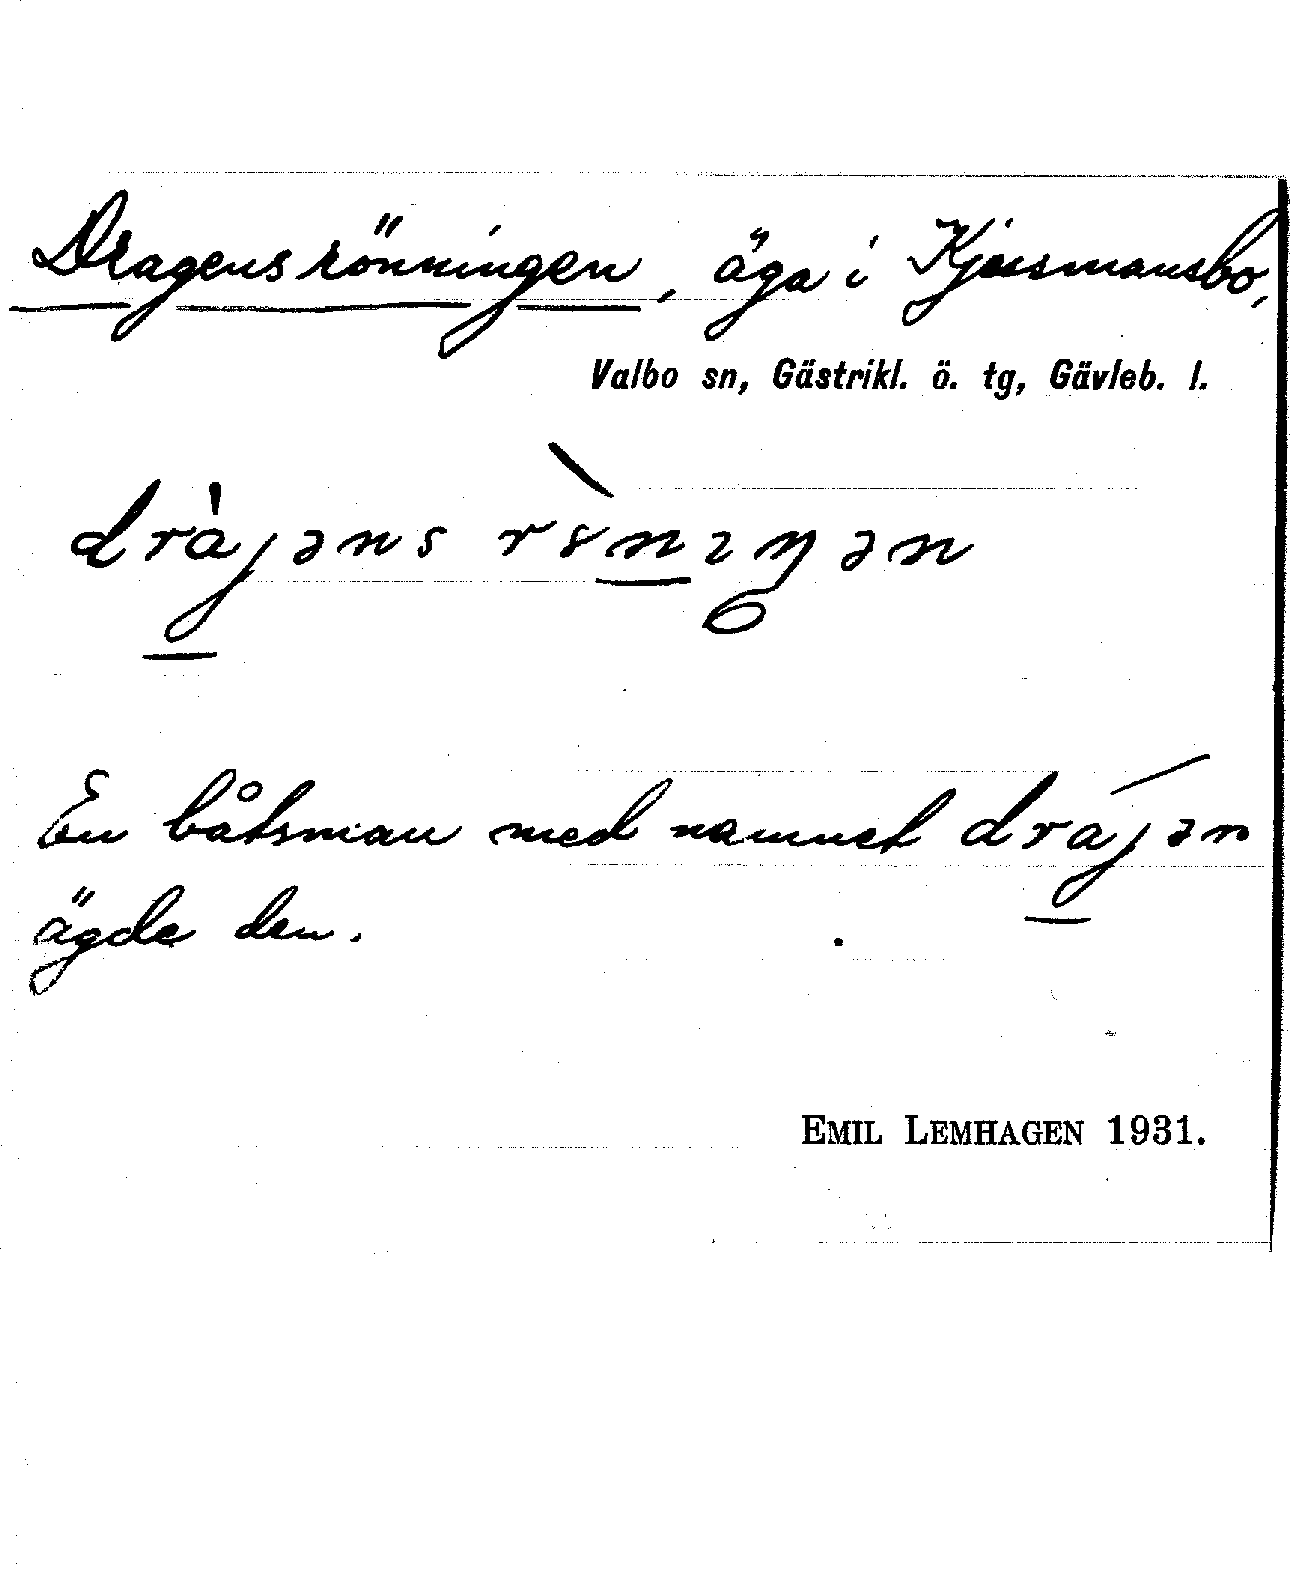 Dragens rönningen, äga i Kjessmansbo,
Valbo sn, Gästrikl. ö. tg, Gävleb. l.
dràjəns rönıŋən
En båtsman med namnet drájən
ägde den.
EMIL LEMHAGEN 1931.